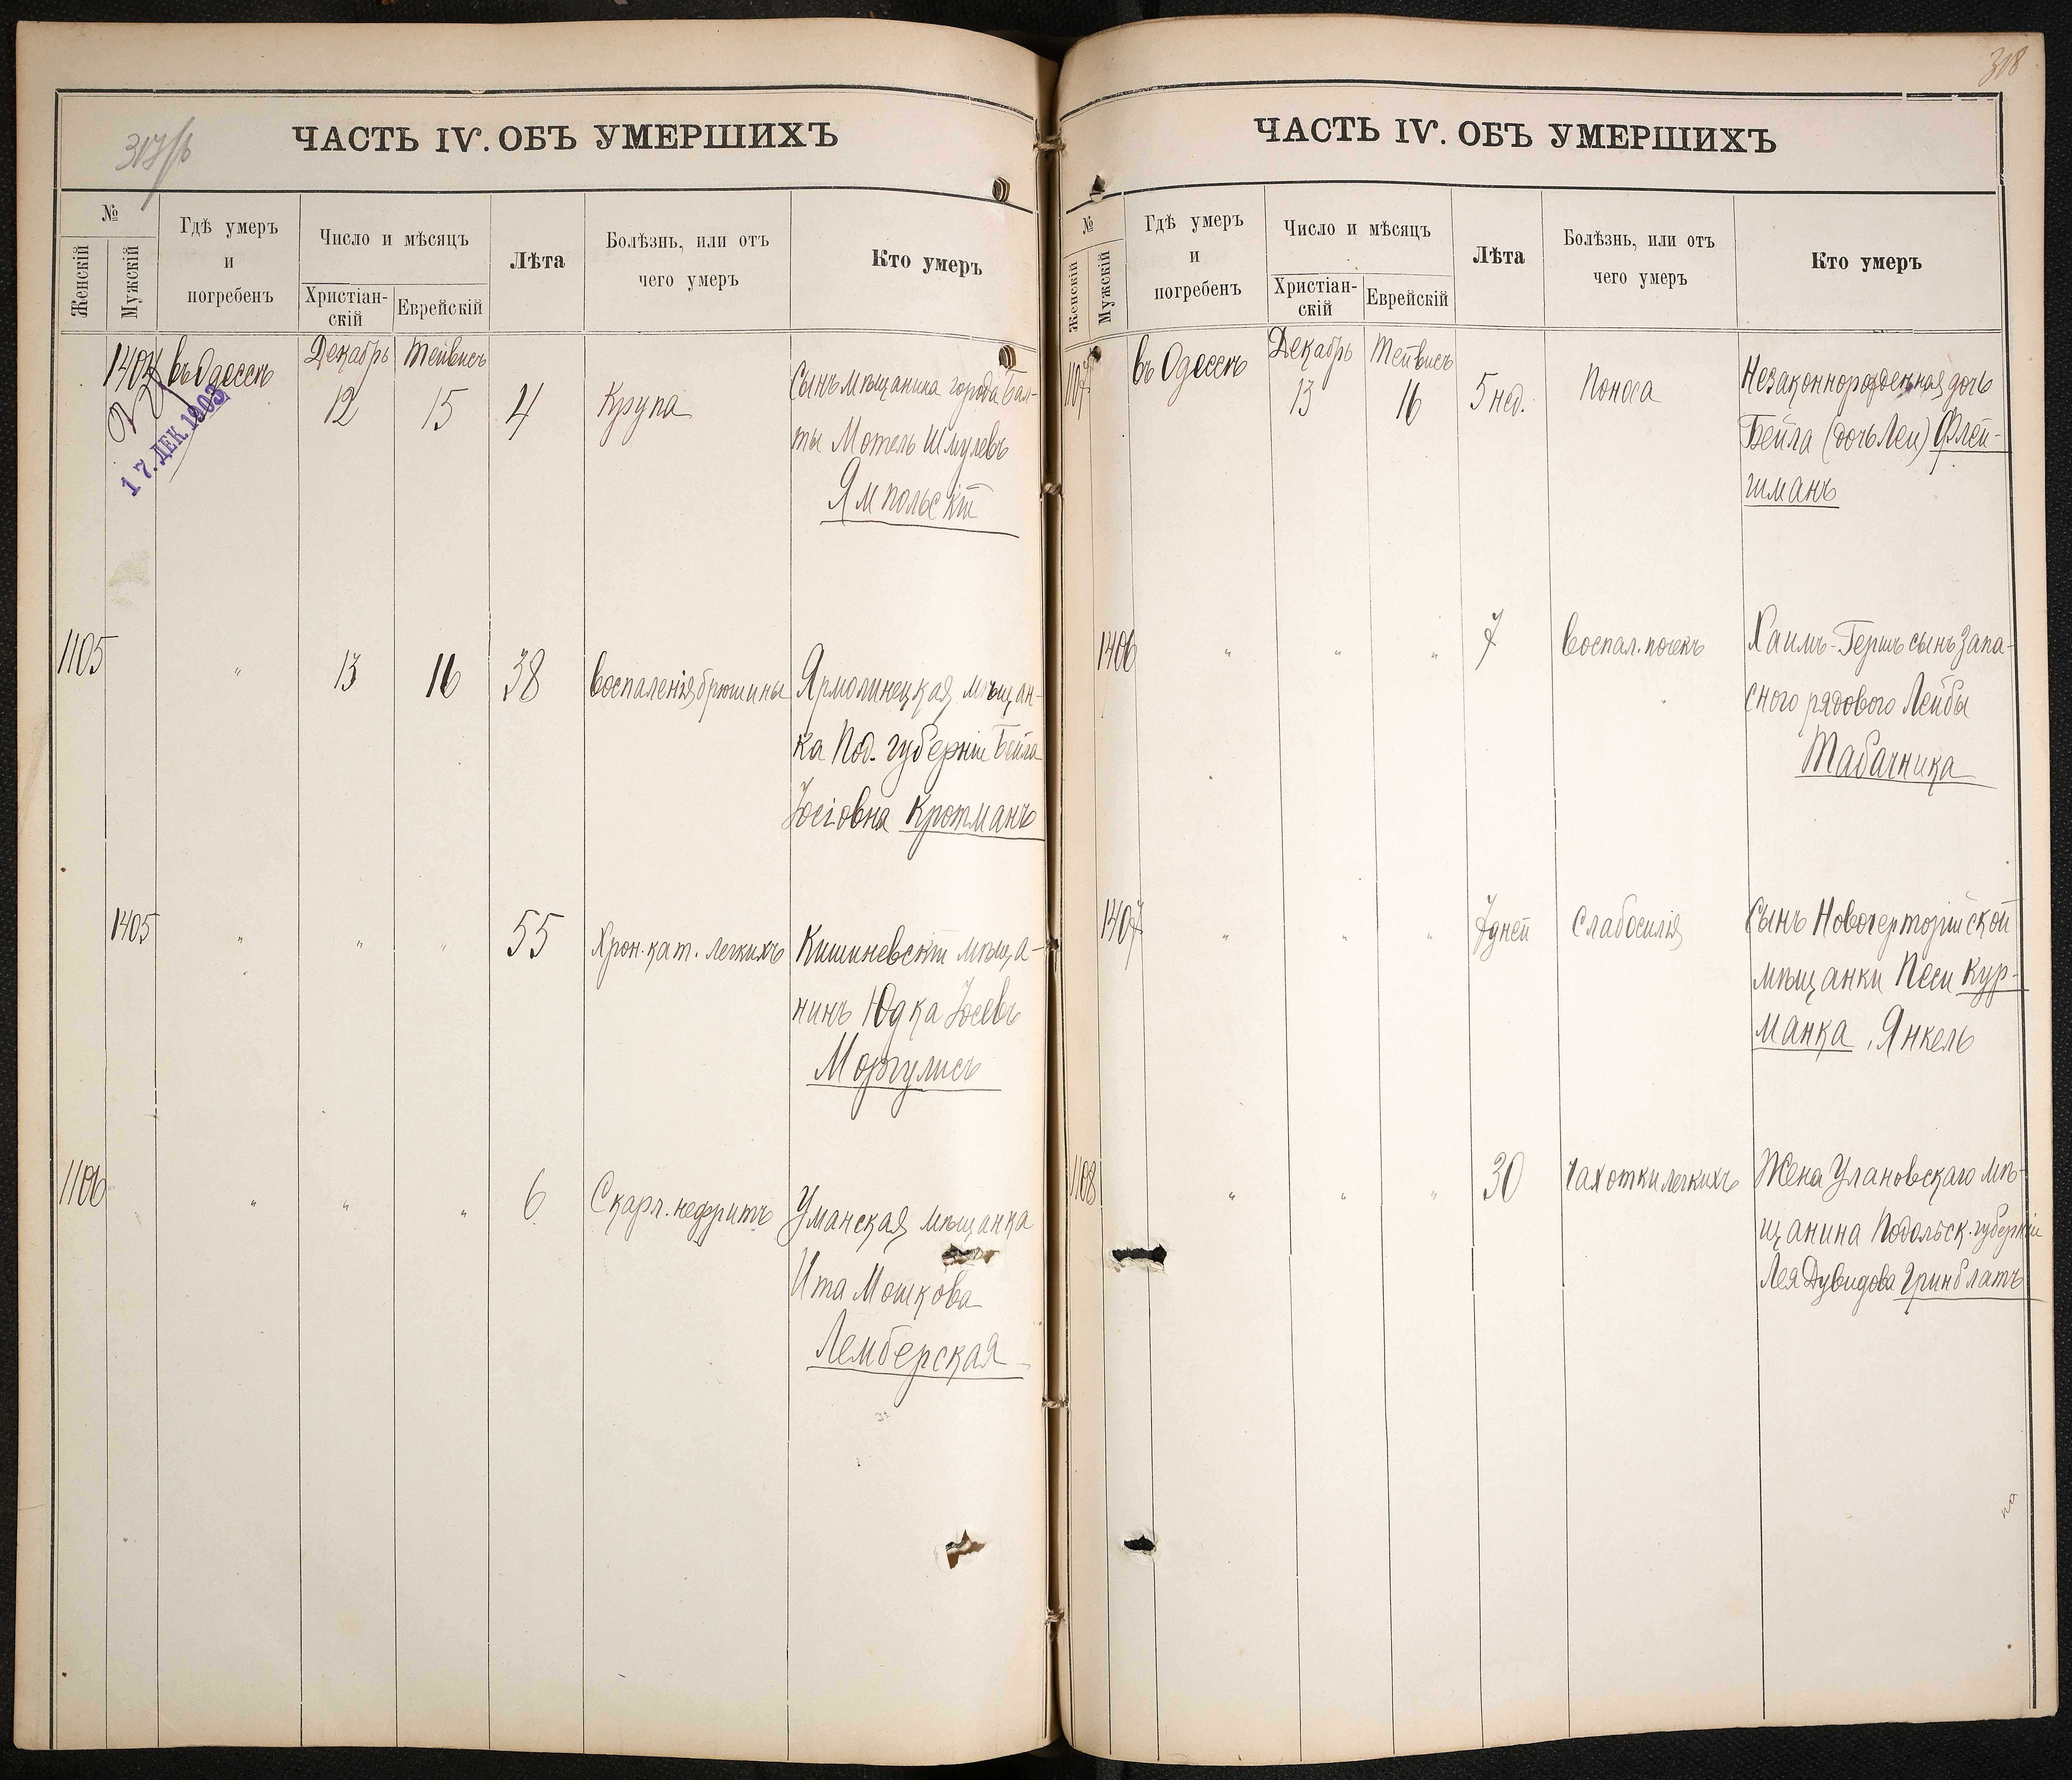 317/б
ЧАСТЬ IV. ОБЪ УМЕРШИХЪ
№
Женскій
Мужскій
Гдѣ умеръ
и
погребенъ
Число и мѣсяцъ
Христіан-
скій
Еврейскій
Лѣта
Болѣзнь, или отъ
чего умеръ
Кто умеръ
1404 въ Одессѣ Декабрь Тейвисъ
12 15 4 Крупа
Сынъ мѣщанина города Бал-
ты Мотель Шмулевъ
Ямпольскій
17. ДЕК 1903
1105 " 13 16 38 Воспаленія брюшины Ярмолинецкая мѣщан-
ка Под. губерніи Бейла
Іосіовна Кротманъ
1405 " " " 55 Хрон. кат. легкихъ Кишиневскій мѣща-
нинъ Юдка Іосевъ
Моргулисъ
1106 " " " 6 Скарл. нефритъ Уманская мѣщанка
Ита Мошкова
Лемберская
308
ЧАСТЬ IV. ОБЪ УМЕРШИХЪ
№
Женскій
Мужскій
Гдѣ умеръ
и
погребенъ
Число и мѣсяцъ
Христіан-
скій
Еврейскій
Лѣта
Болѣзнь, или отъ
чего умеръ
Кто умеръ
1107 въ Одессѣ Декабрь Тейвисъ
13 16 5 нед. Поноса
Незаконнорожденная дочь
Бейла (дочь Леи) Флей-
шманъ
1406 " " " 7 Воспал. почекъ Хаимъ-Гершъ сынъ запа-
сного рядового Лейбы
Табачника
1407 " " " 7 дней Слабосилія Сынъ Новочерторійской
мѣщанки Песи Кур-
манка, Янкель
1108 " " " 30 Чахотки легкихъ Жена Улановскаго мѣ-
щанина Подольск. губерніи
Лея Дувидова Гринблатъ